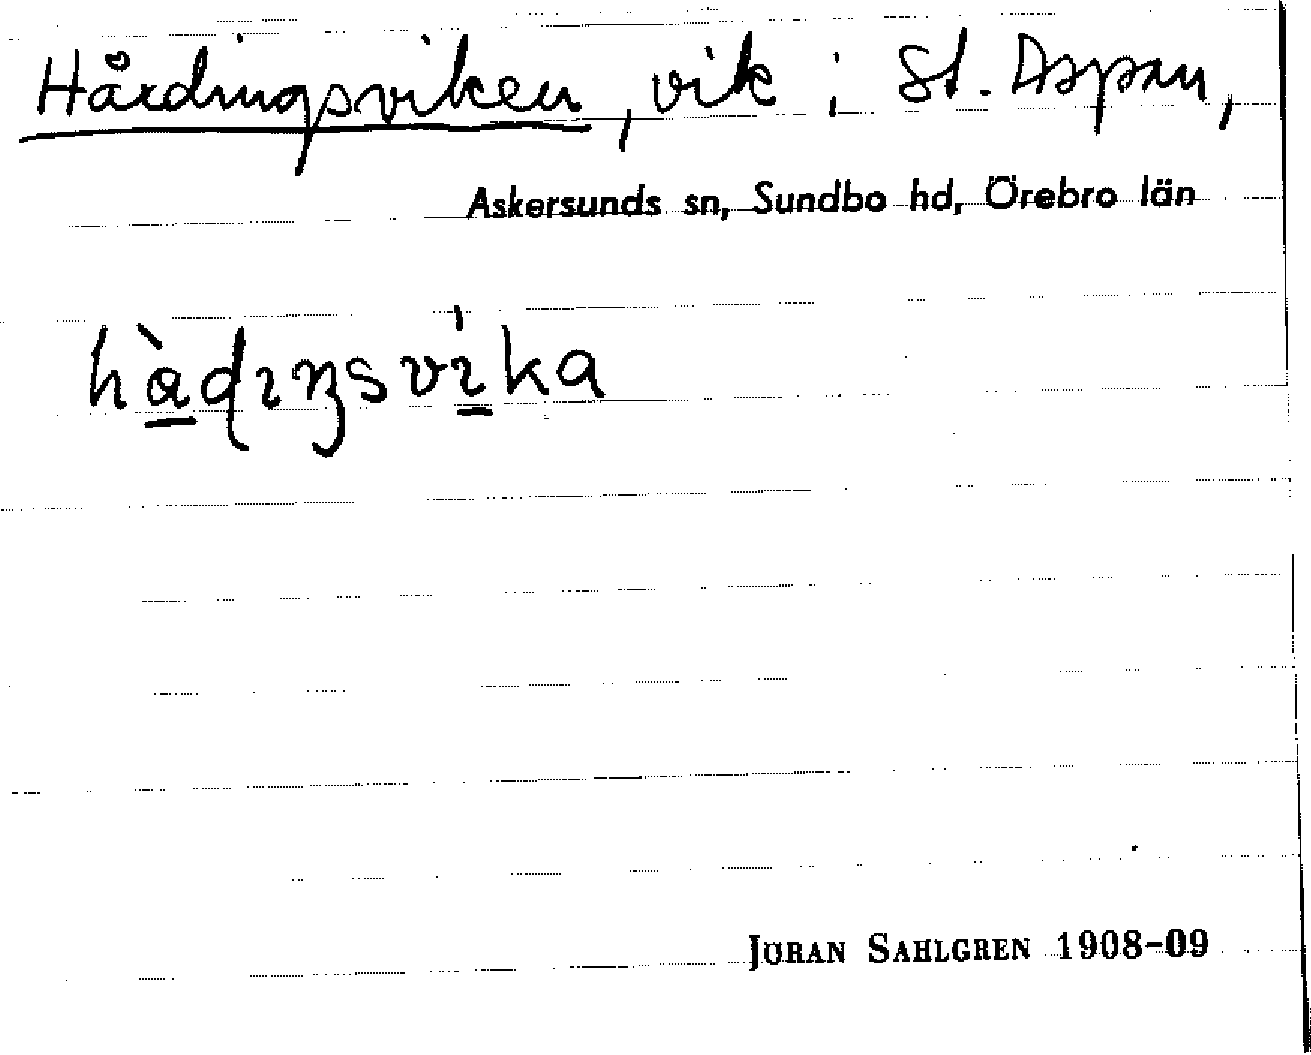 Hårdingsviken, vik i St. Aspan,
Askersunds sn, Sundbo hd, Örebro län
hàdıŋsvı̍ka
JÖRAN SAHLGREN 1908-09